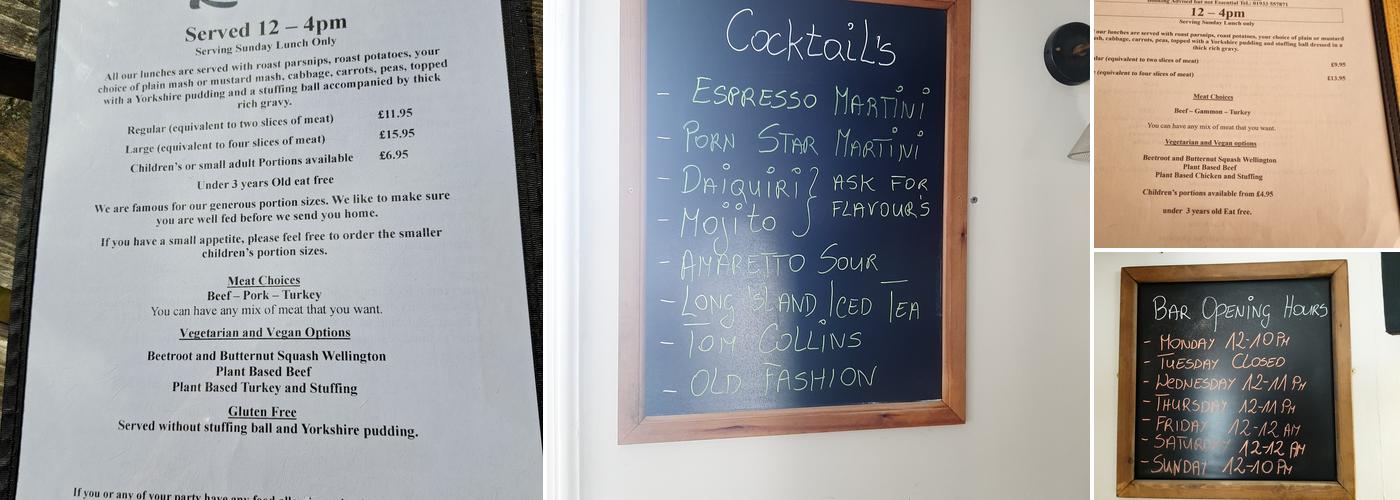 Served 12 – 4pm
Serving Sunday Lunch Only
All our lunches are served with roast parsnips, roast potatoes, your
choice of plain mash or mustard mash, cabbage, carrots, peas, topped
with a Yorkshire pudding and a stuffing ball accompanied by thick
rich gravy.
Regular (equivalent to two slices of meat) £11.95
Large (equivalent to four slices of meat) £15.95
Children's or small adult Portions available £6.95
Under 3 years Old eat free
We are famous for our generous portion sizes. We like to make sure
you are well fed before we send you home.
If you have a small appetite, please feel free to order the smaller
children's portion sizes.
Meat Choices
Beef – Pork – Turkey
You can have any mix of meat that you want.
Vegetarian and Vegan Options
Beetroot and Butternut Squash Wellington
Plant Based Beef
Plant Based Turkey and Stuffing
Gluten Free
Served without stuffing ball and Yorkshire pudding.
If you or any of your party have any food
Cocktail's
- ESPRESSO MARTINI
- PORN STAR MARTINI
- DAIQUIRI } ASK FOR
- Mojito } FLAVOUR'S
- AMARETTO SOUR
- LONG ISLAND ICED TEA
- TOM COLLINS
- OLD FASHION
Booking Advised but not Essential Tel.: 01933 557871
12 – 4pm
Serving Sunday Lunch only
our lunches are served with roast parsnips, roast potatoes, your choice of plain or mustard
cabbage, carrots, peas, topped with a Yorkshire pudding and stuffing ball dressed in a
thick rich gravy.
(equivalent to two slices of meat) £9.95
(equivalent to four slices of meat) £13.95
Meat Choices
Beef – Gammon – Turkey
You can have any mix of meat that you want.
Vegetarian and Vegan options
Beetroot and Butternut Squash Wellington
Plant Based Beef
Plant Based Chicken and Stuffing
Children's portions available from £4.95
under 3 years old Eat free.
BAR OPENING HOURS
- MONDAY 12-10 PM
- TUESDAY CLOSED
- WEDNESDAY 12-11 PM
- THURSDAY 12-11 PM
- FRIDAY 12-12 AM
- SATURDAY 12-12 AM
- SUNDAY 12-10 PM